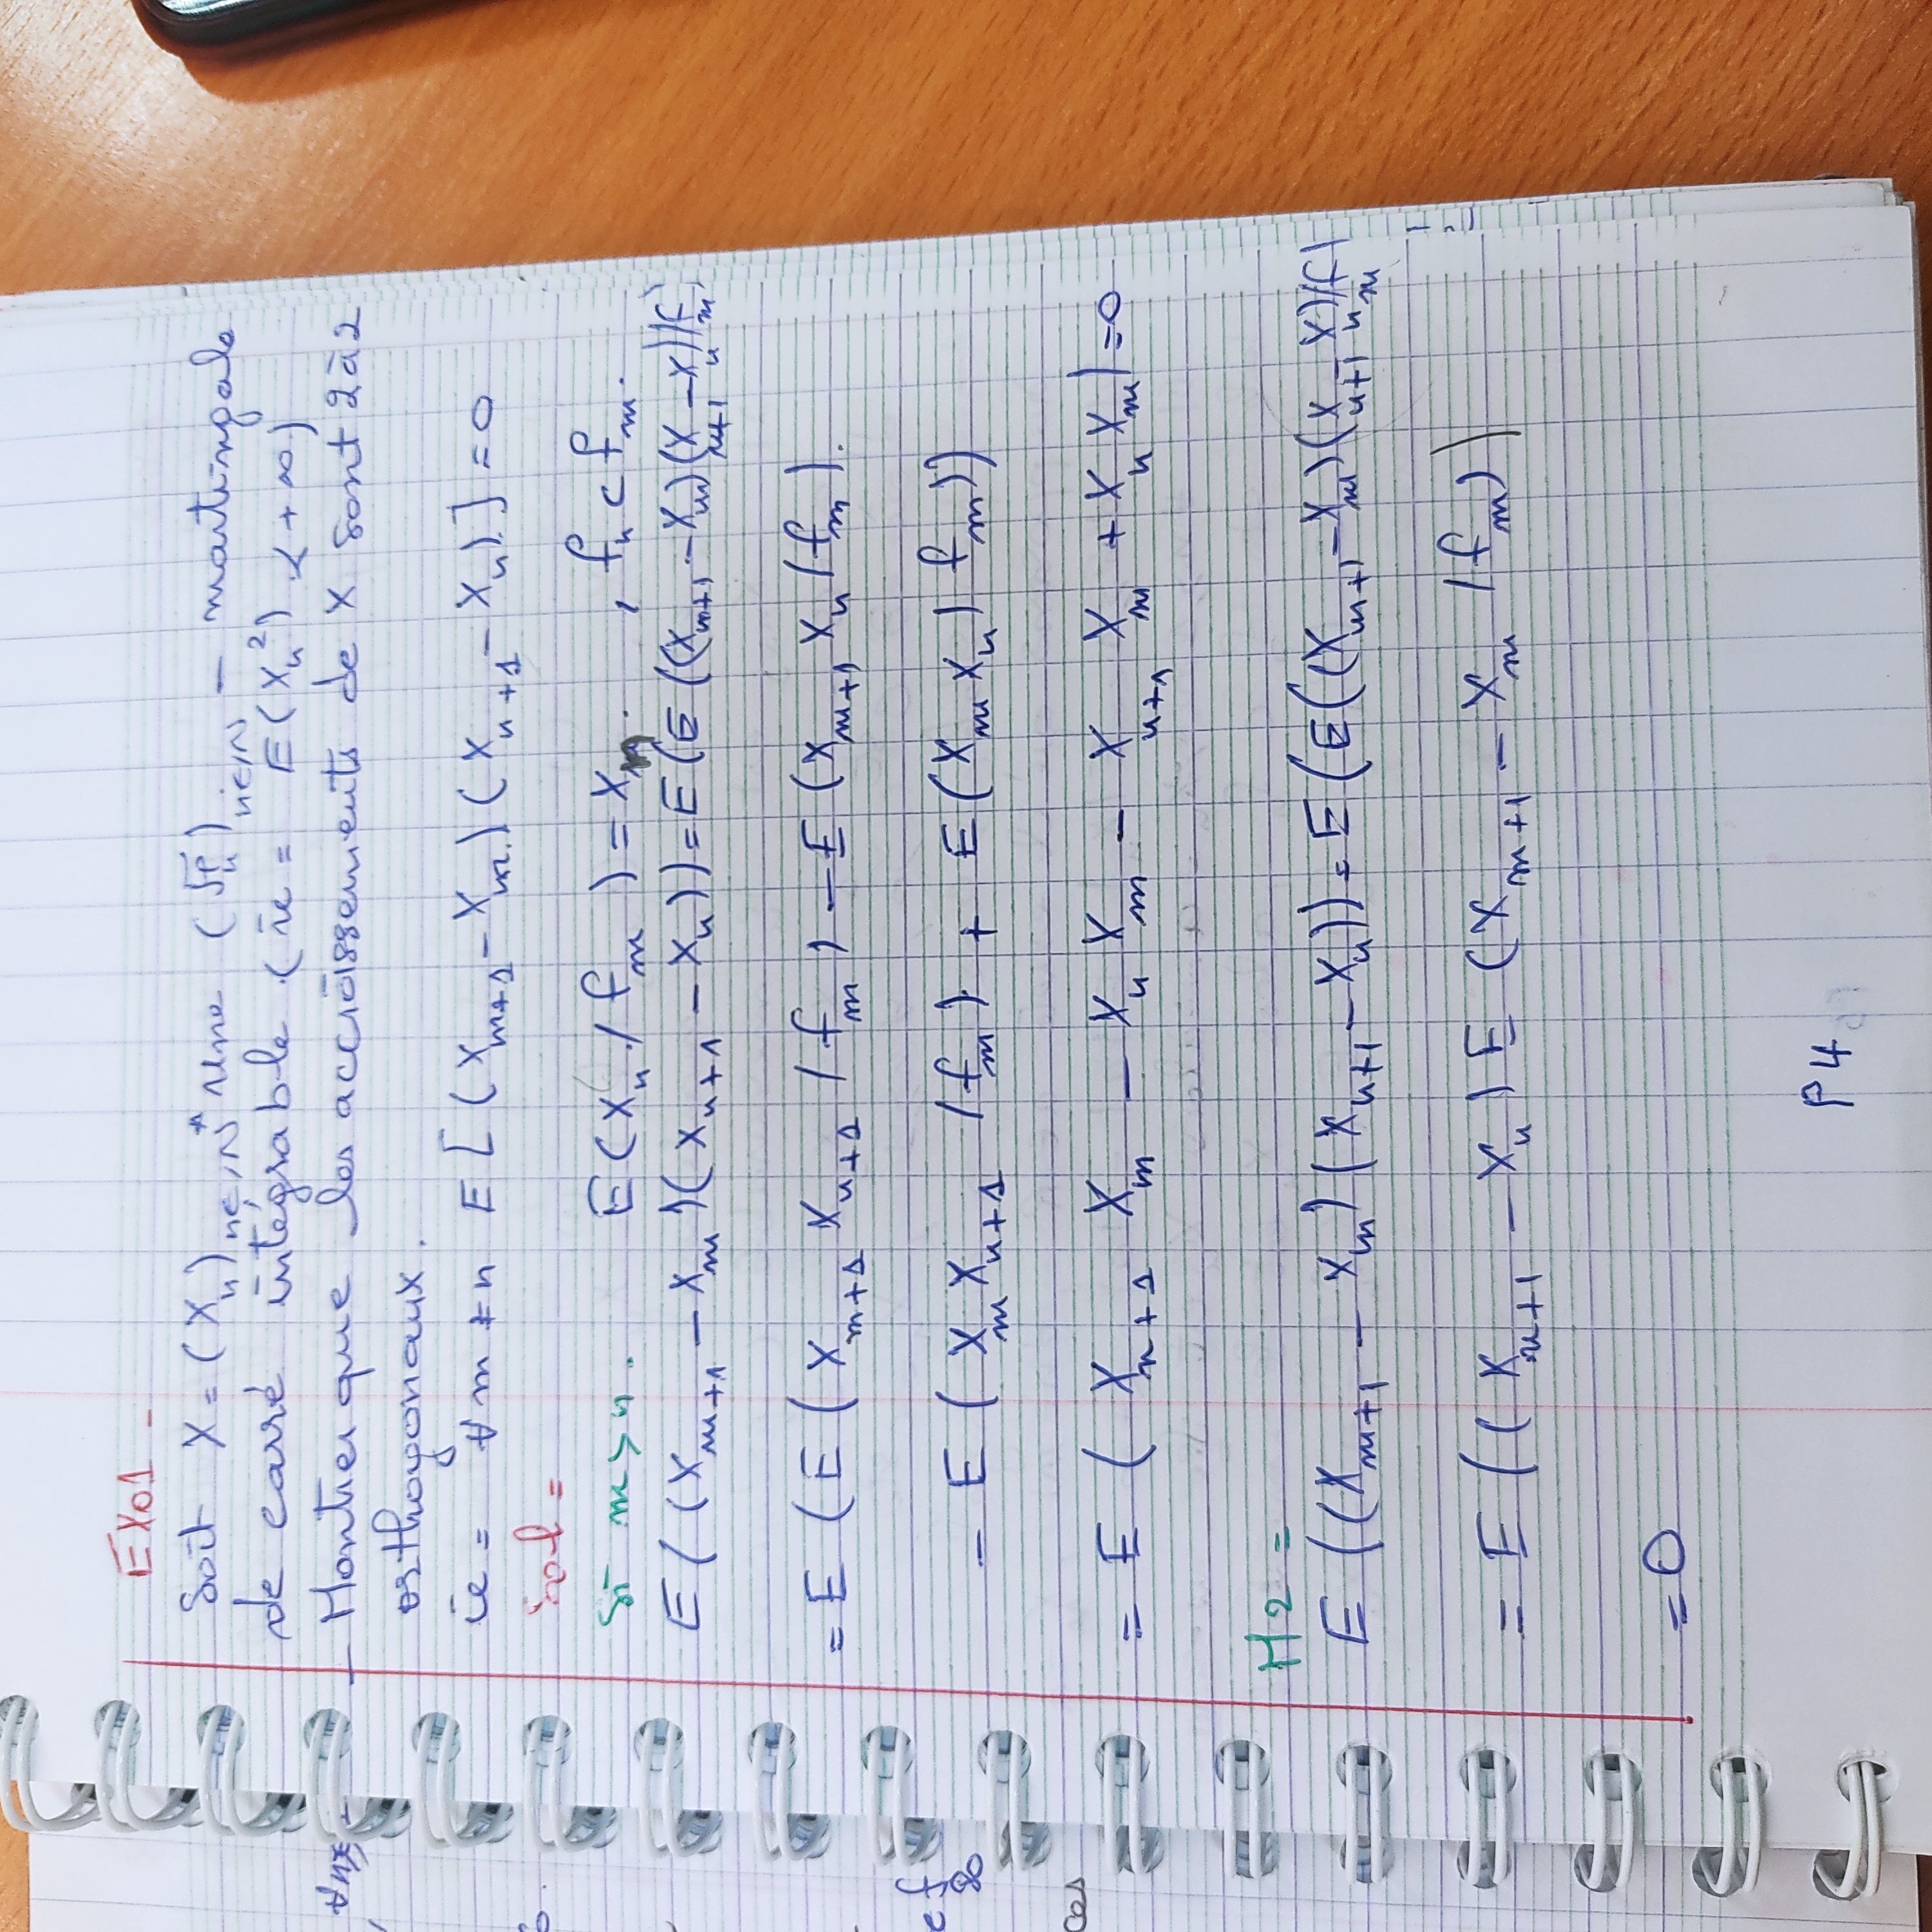 EX01 -
Soit X = (X_n)_{n∈ℕ*} une (ℱ_n)_{n∈ℕ} - martingale
de carré intégrable (ie = E(X_n²) < +∞)
- Montrer que les accroissements de X sont 2 à 2
orthogonaux.
ie = ∀ m ≠ n E[(X_{m+1} - X_m)(X_{n+1} - X_n)] = 0
Sol =
Si m > n. E(X_n / f_m) = X_n. , f_n ⊂ f_m.
E((X_{m+1} - X_m)(X_{n+1} - X_n)) = E(E((X_{m+1} - X_m)(X_{n+1} - X_n)/f_m)
= E(E(X_{m+1} X_{n+1} / f_m) - E(X_{m+1} X_n / f_m).
- E(X_m X_{n+1} / f_m) + E(X_m X_n / f_m))
= E(X_{n+1} X_m - X_n X_m - X_{n+1} X_m + X_n X_m) = 0
M2 =
E((X_{m+1} - X_m)(X_{n+1} - X_n)) = E(E((X_{m+1} - X_m)(X_{n+1} - X_n)/f_m)
= E((X_{n+1} - X_n) E(X_{m+1} - X_m / f_m))
= 0
P4
∀n
ef
80
ces